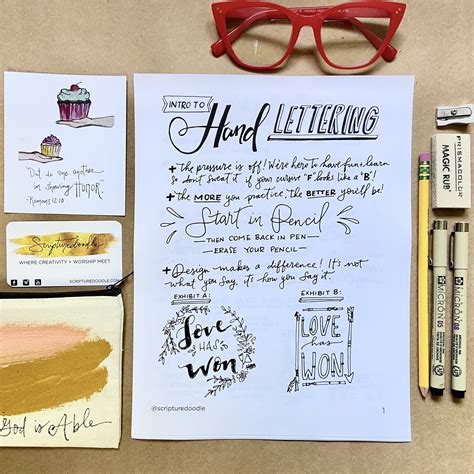 INTRO TO Hand LETTERING
+ the pressure is off! We're here to have fun + learn
so don't sweat if your cursive "F" looks like a "B"!
+ the MORE you practice, the BETTER you'll be!
Start in Pencil
THEN COME BACK IN PEN
ERASE YOUR PENCIL
+ Design makes a difference! It's not
what you say, it's how you say it.
EXHIBIT A:
Love
HAS
Won
EXHIBIT B:
LOVE
has
WON
@scripturedoodle
1
Out do one another
in showing
HONOR.
Romans 12:10
Scripturedoodle
WHERE CREATIVITY + WORSHIP MEET
SCRIPTUREDOODLE.COM
God is Able
PRISMACOLOR
MAGIC RUB
MICRON 05
MICRON 08